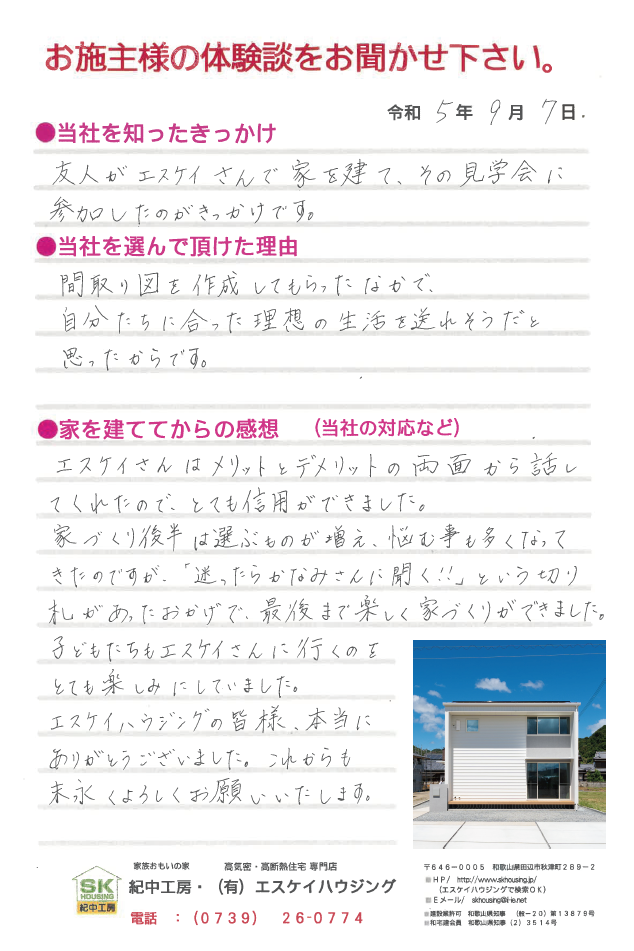 お施主様の体験談をお聞かせ下さい。
令和 5年 9月 7日.
●当社を知ったきっかけ
友人がエスケイさんで家を建て、その見学会に
参加したのがきっかけです。
●当社を選んで頂けた理由
間取り図を作成してもらったなかで、
自分たちに合った理想の生活を送れそうだと
思ったからです。
●家を建ててからの感想 （当社の対応など）
エスケイさんはメリットとデメリットの両面から話し
てくれたので、とても信用ができました。
家づくり後半は選ぶものが増え、悩む事も多くなって
きたのですが、「迷ったらかなみさんに聞く!!」という切り
札があったおかげで、最後まで楽しく家づくりができました。
子どもたちもエスケイさんに行くのを
とても楽しみにしていました。
エスケイハウジングの皆様、本当に
ありがとうございました。これからも
末永くよろしくお願いいたします。
SK
HOUSING
紀中工房
家族おもいの家 高気密・高断熱住宅 専門店
紀中工房・（有）エスケイハウジング
電話 ：（0739） 26-0774
〒646－0005 和歌山県田辺市秋津町269－2
■HP/ http://www.skhousing.jp/
（エスケイハウジングで検索OK）
■Eメール/ skhousing@i-ie.net
■建設業許可 和歌山県知事 （般－20）第13879号
■和宅建会員 和歌山県知事（2）3514号